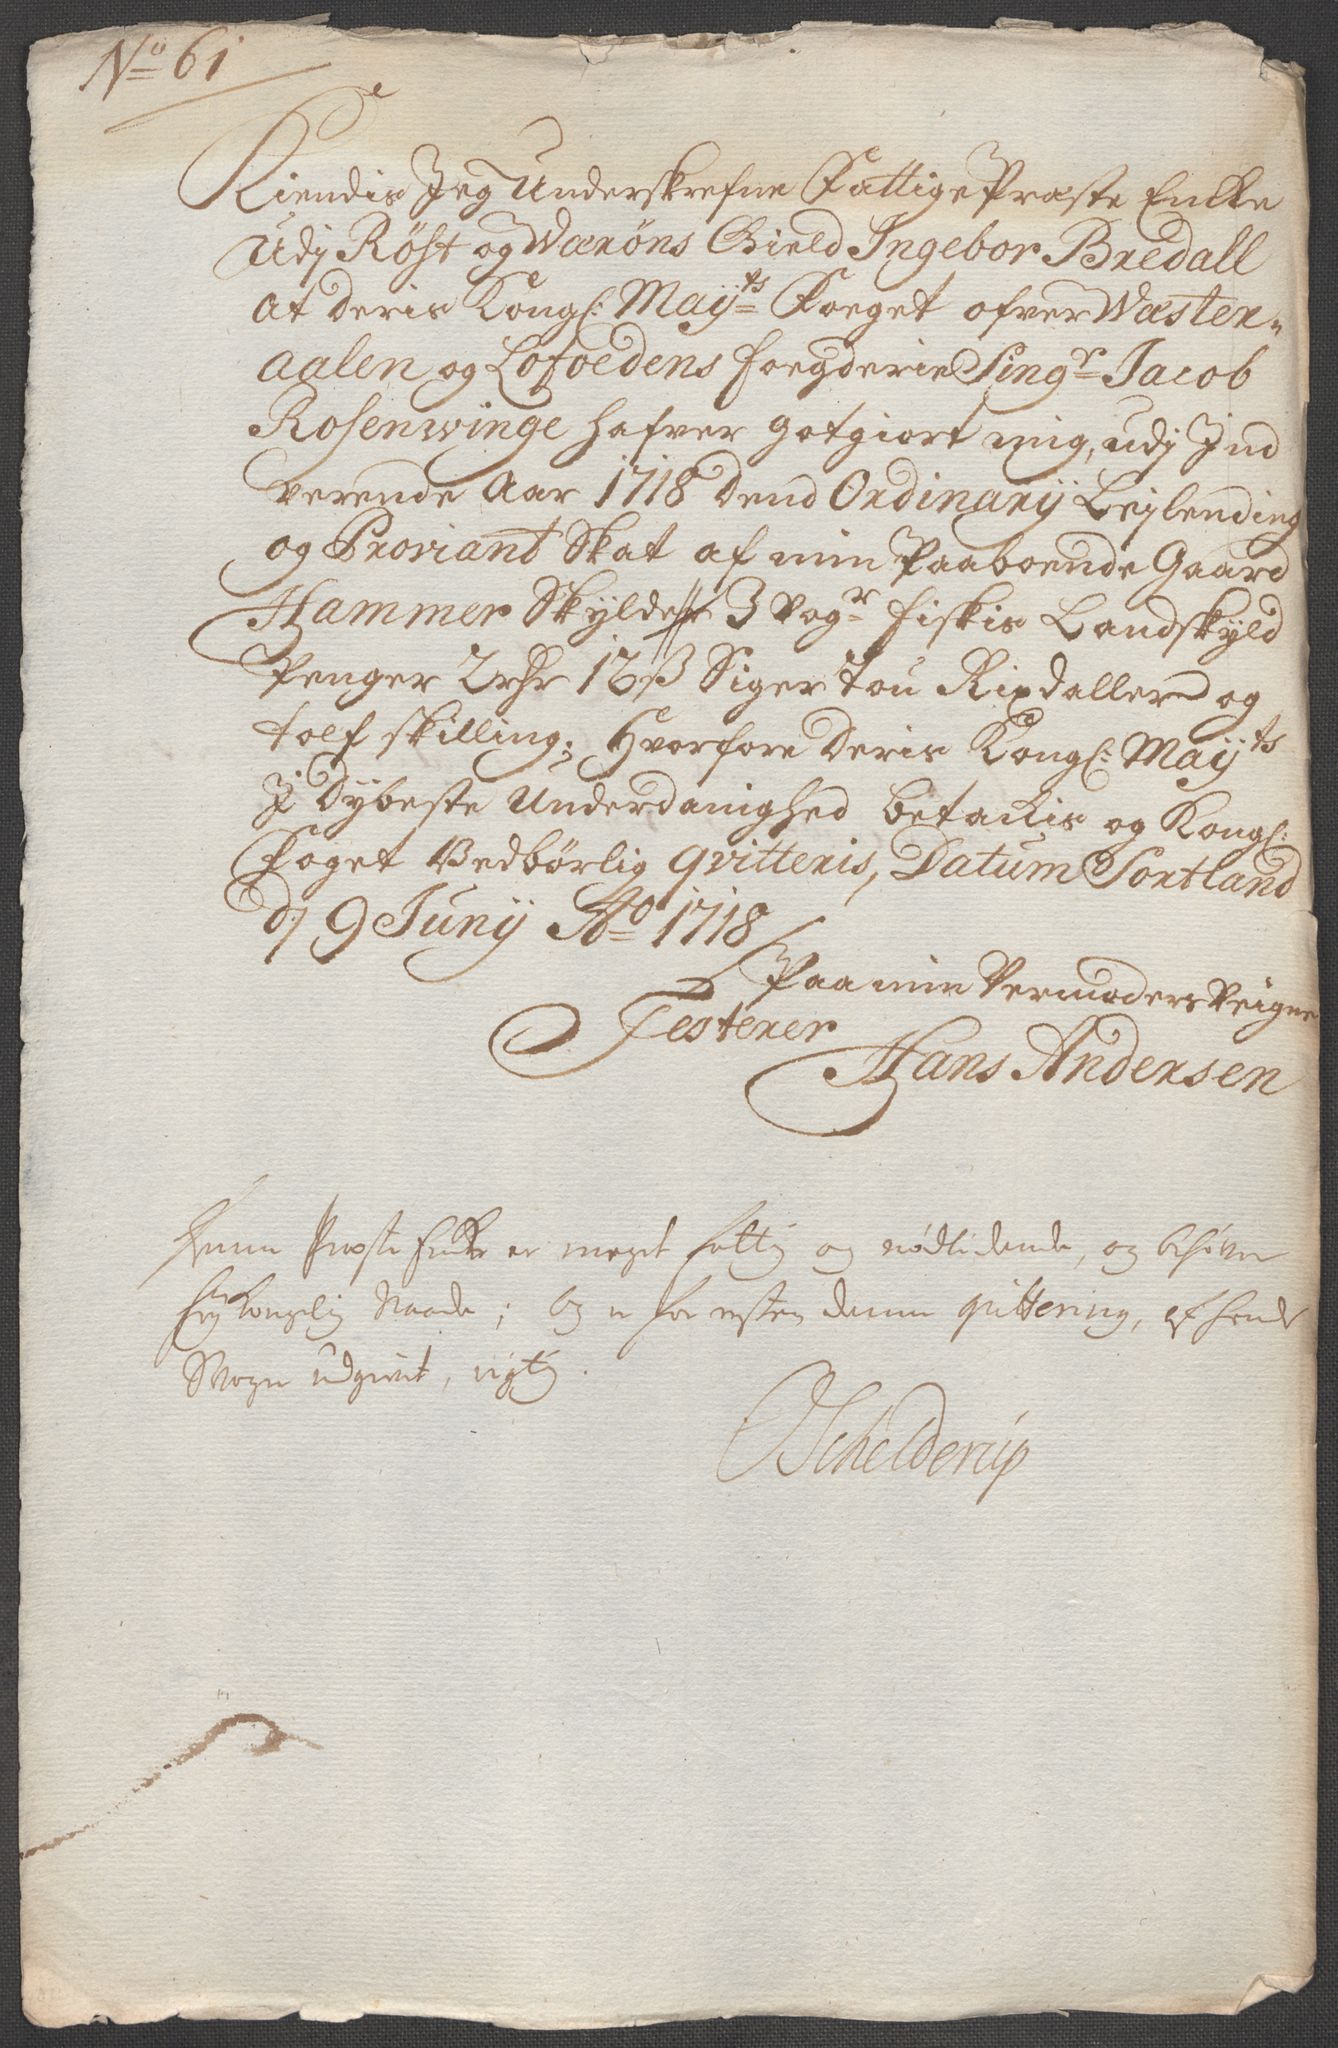 No 61
Kiendis Jeg Underskrefne Fattige Præste Encke
Udj Röst og Væröns Gield Ingebor Bredall
At deris Kongl: Mayts Foeget ofver Wæster-
aalen og Lofoedens foegderie Singr Jacob
Rosenwinge hafver gotgiort mig, udj Ind
verende Aar 1718 dend Ordinarÿ Lejlending
og Proviant Skat af min Paaboende Gaard
Hammer Skylder 3 Vogr fiskis Landskyld
Penger 2 rdr 12 ß Siger Tou Rixdaller og
tolf skilling; Hvorfore deris Kongl: Mayts
J Dybeste Underdanighed betackis og Kongl:
Foget Vedbørlig qvitteris, Datum Sortland
dj 9 Junÿ Ao 1718
Paa min Vermoders Veigne
Testerer
Hans Andersen
Denne Præste Encke er meget fattig og nødlidende, og behøver
høy kongelig Naade; og er for resten denne qvittering, af hendes
Svoger udgivet, rigtig.
Schelderup